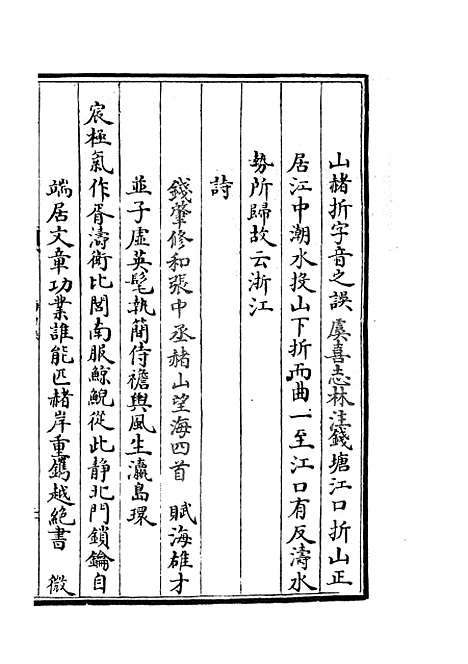 山赭折字音之誤虞喜志林注錢塘江口折山正
居江中潮水投山下折而曲一至江口有反濤水
勢所歸故云浙江
詩
錢肇修和張中丞赭山望海四首　賦海雄才
並子虛英髦執蕳侍襜輿風生瀛島環
宸極氣作胥濤衛比閭南服鯨鯢從此靜北門鎖鑰自
端居文章功業誰能匹赭岸重鐫越絕書　微